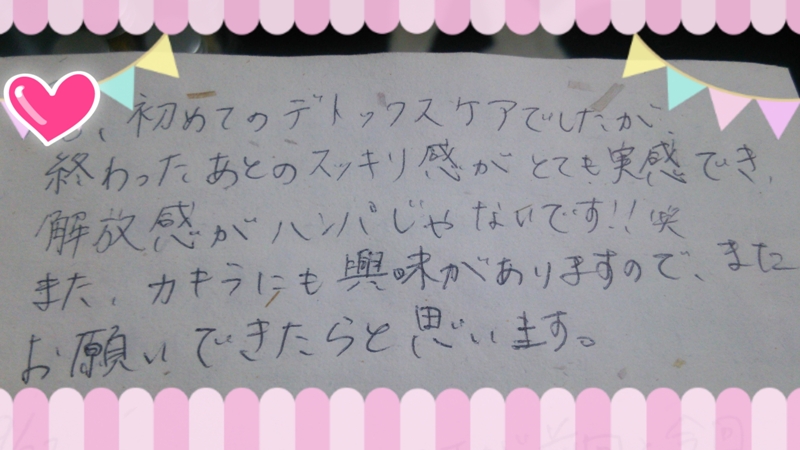 、初めてのデトックスケアでしたが
終わったあとのスッキリ感がとても実感でき、
解放感がハンパじゃないです!!笑
また、カキラにも興味がありますので、また
お願いできたらと思います。